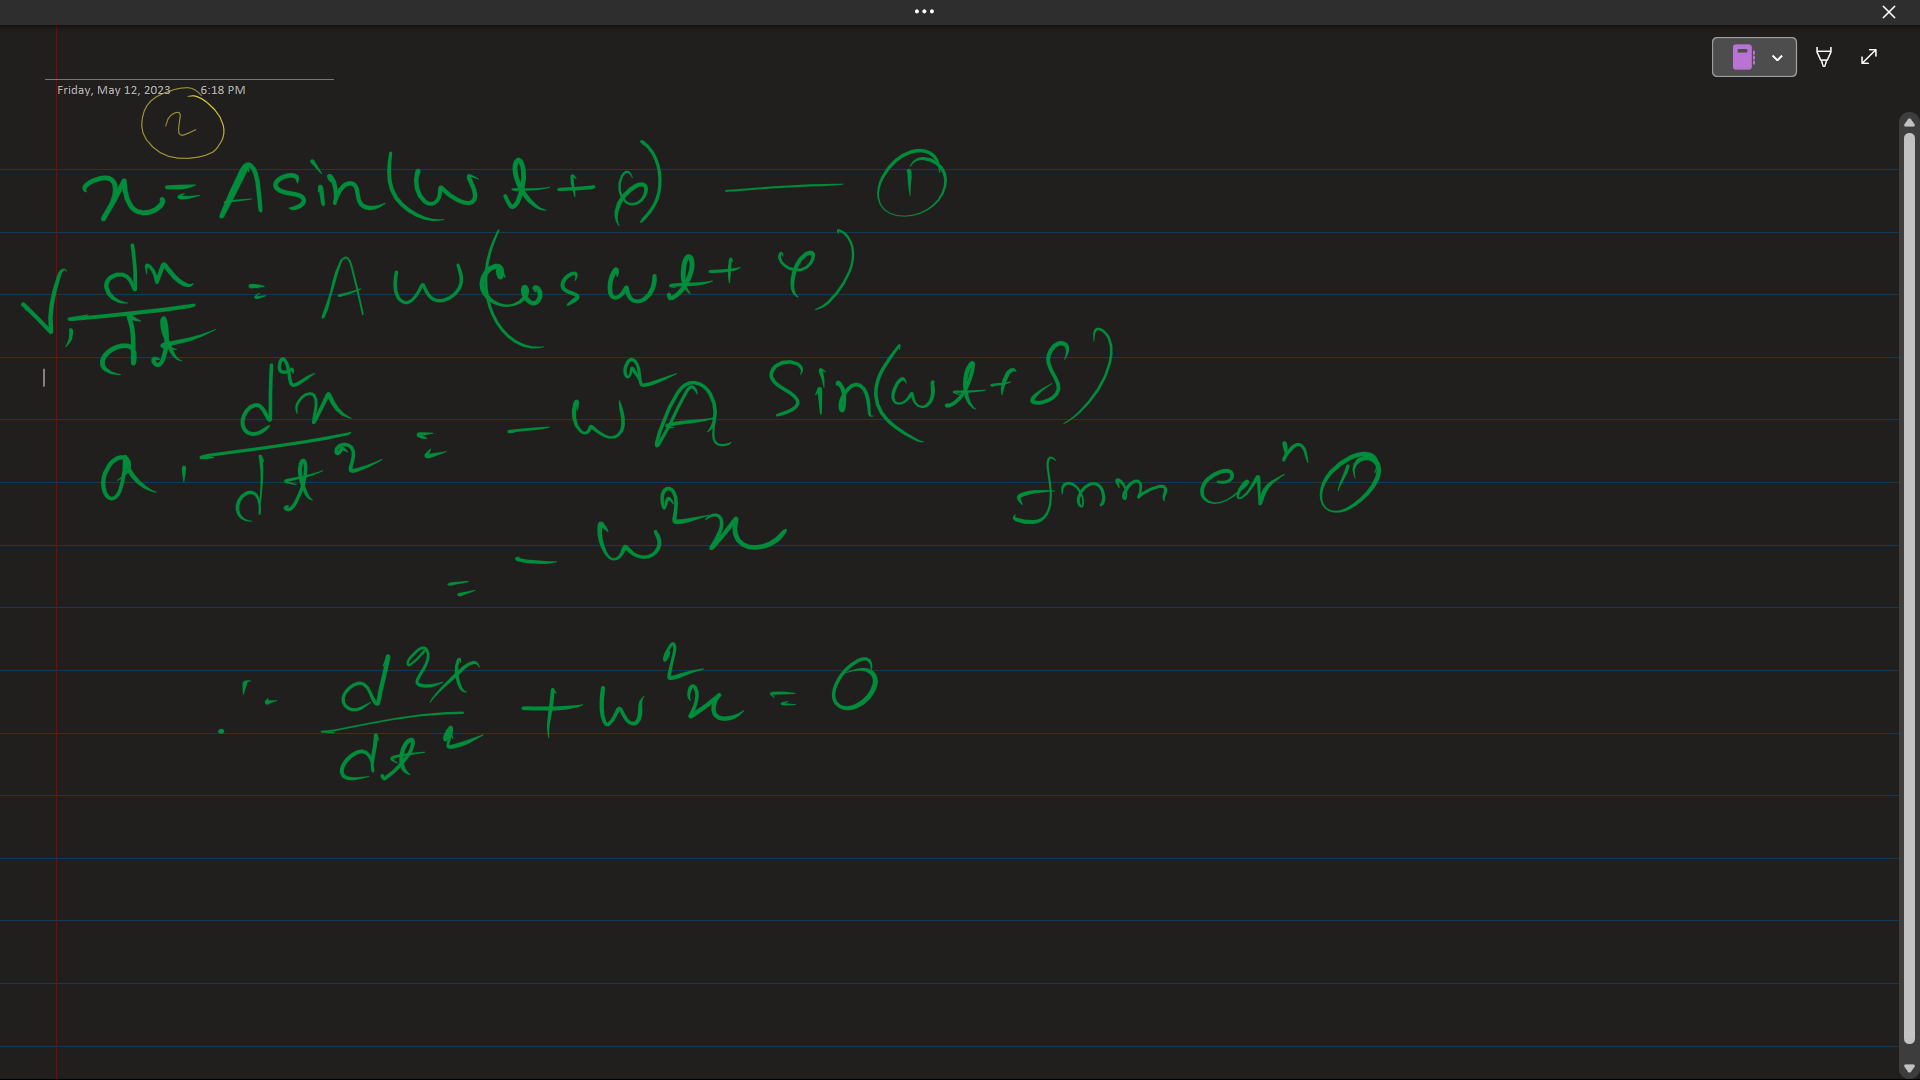 Friday, May 12, 2023 6:18 PM
2
x = A sin(ωt + φ) — ①
v, dx/dt = Aω(cos ωt + φ)
a, d²x/dt² = - ω²A Sin(ωt + δ)
= - ω²x from eqⁿ ①
∴ d²x/dt² + ω²x = 0